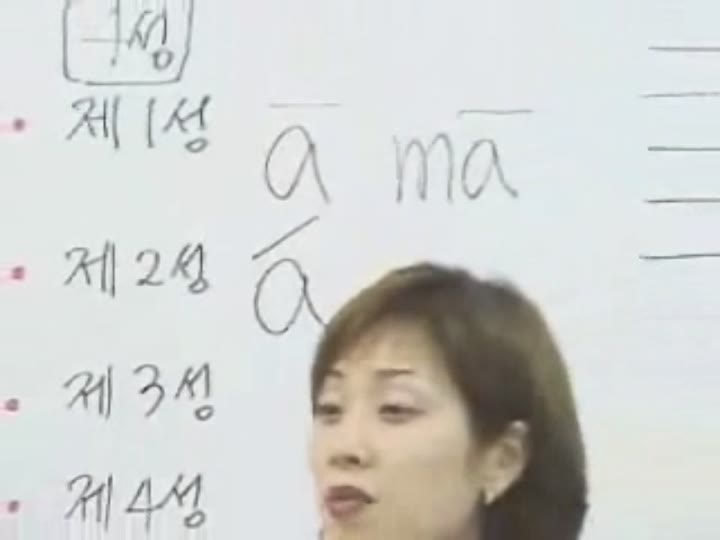 성
제1성 ā mā
제2성 á
제3성
제4성